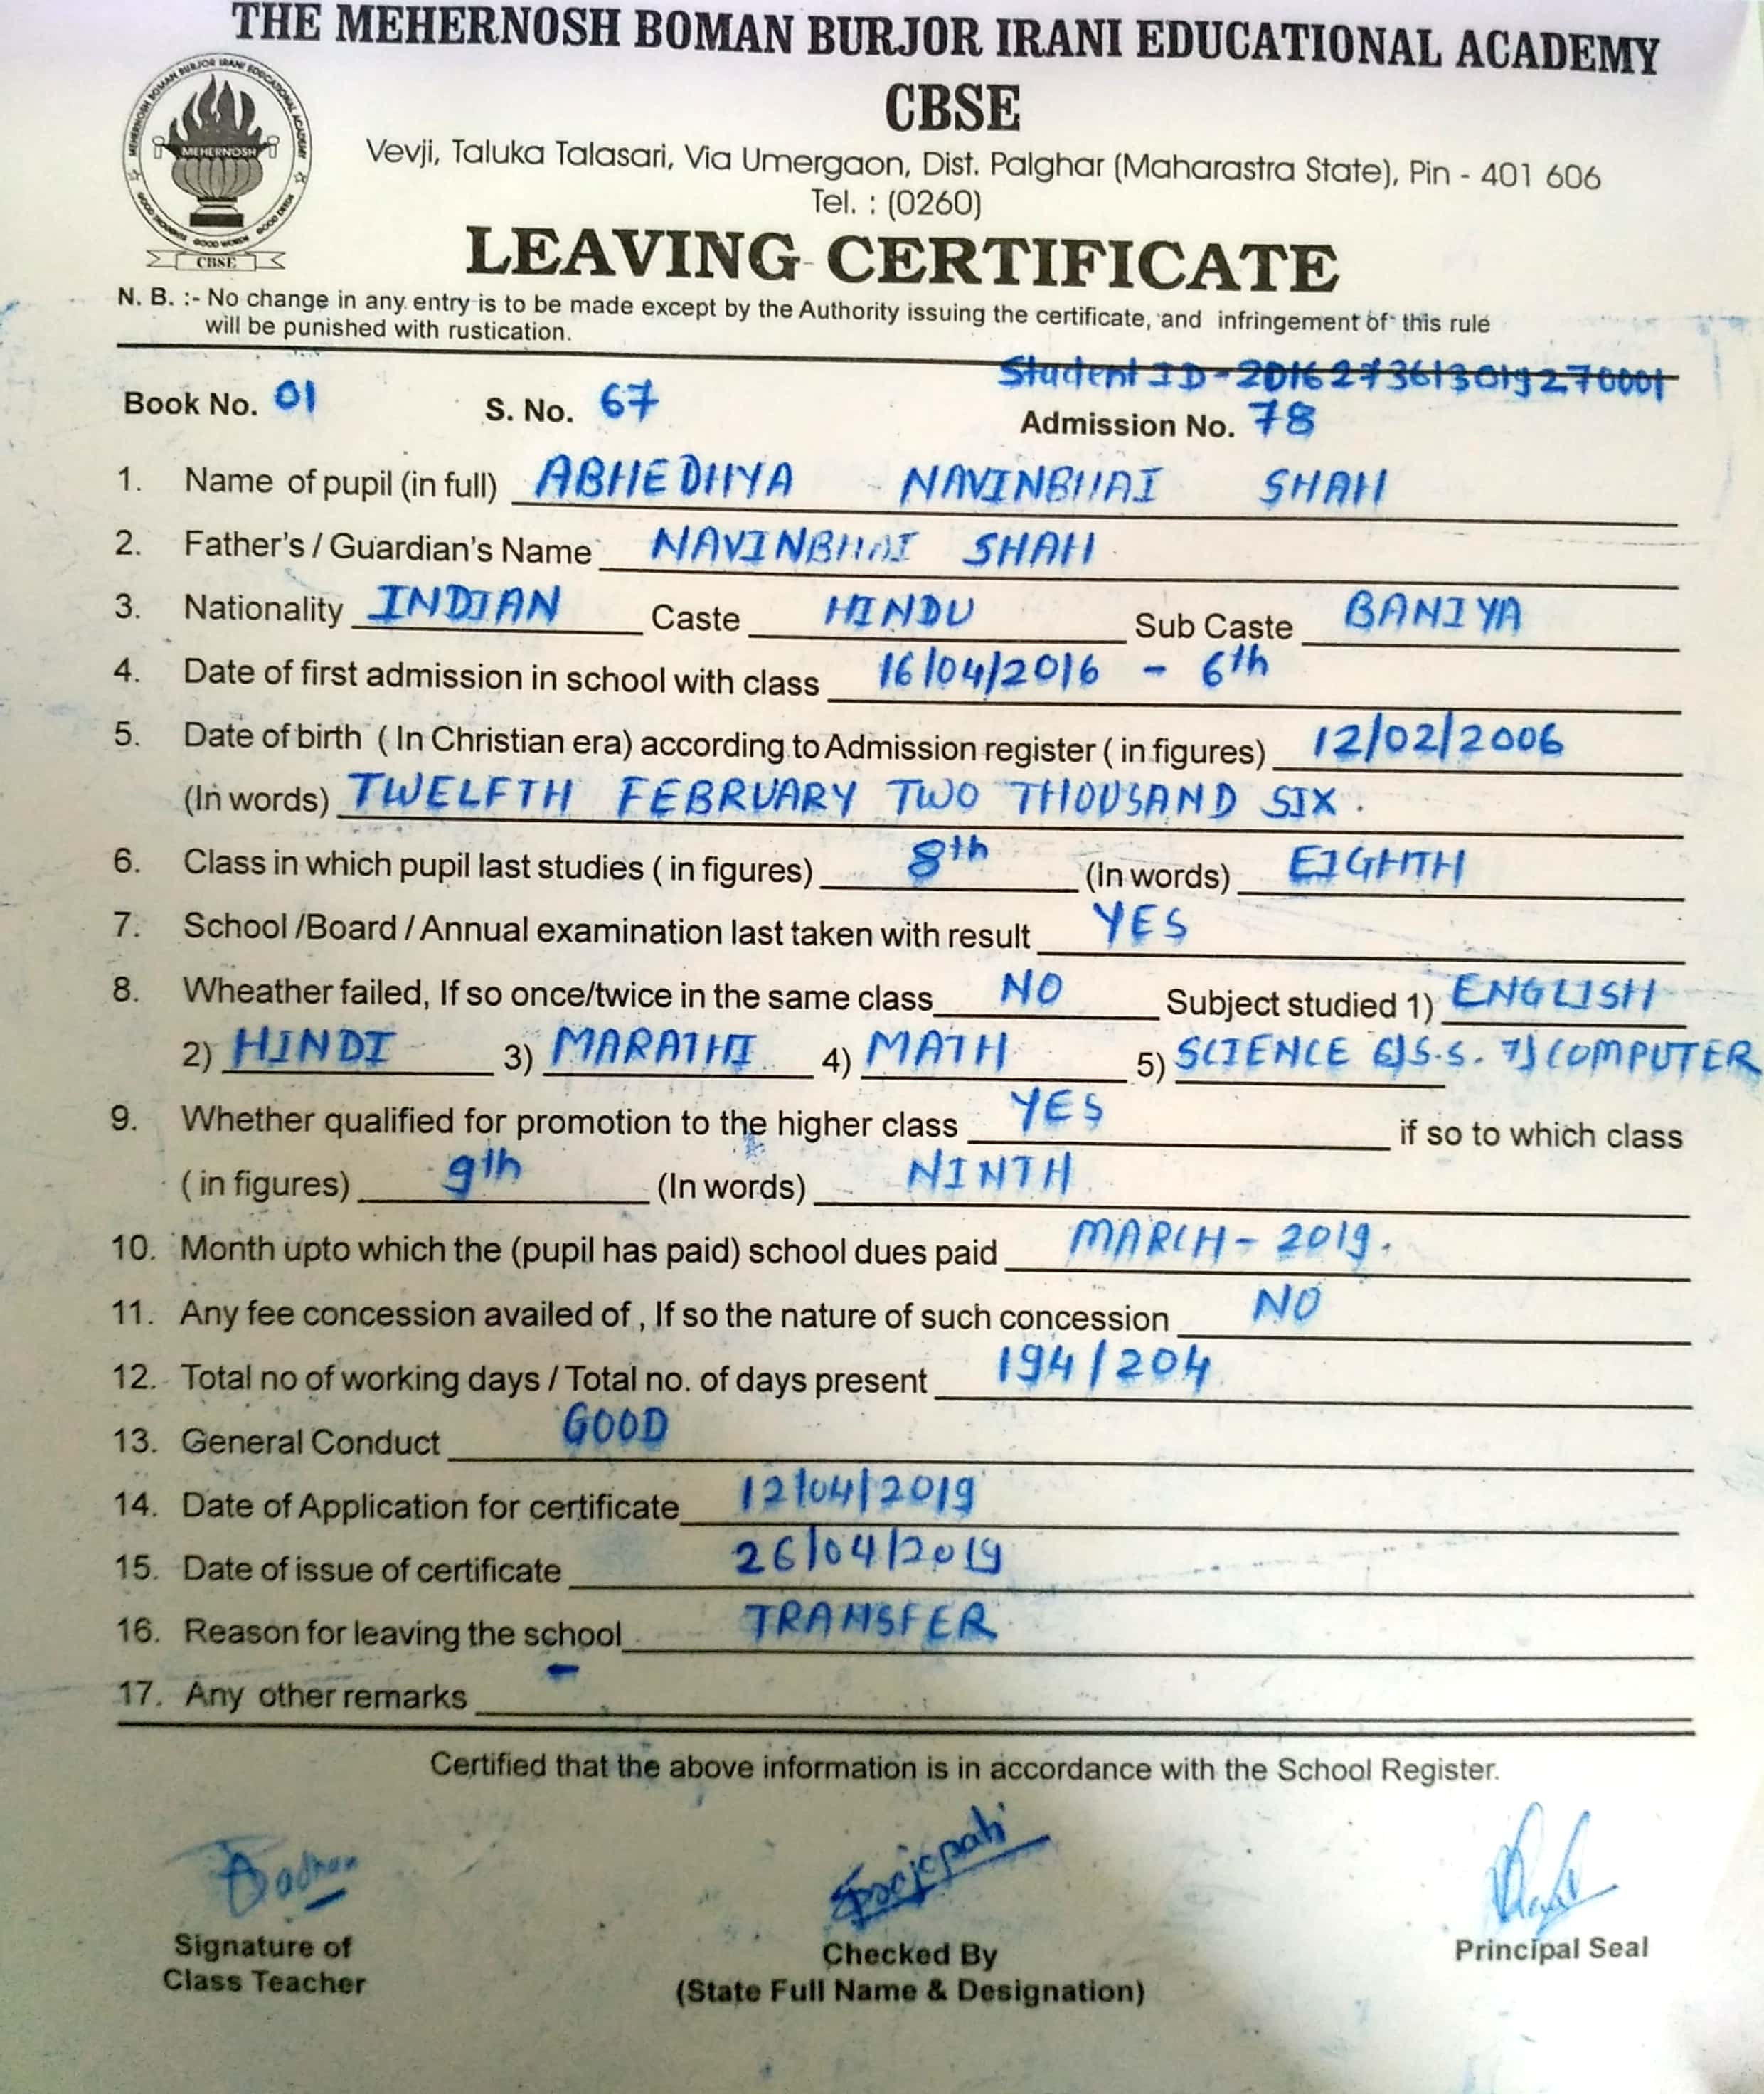 THE MEHERNOSH BOMAN BURJOR IRANI EDUCATIONAL ACADEMY
CBSE
MEHERNOSH BOMAN BURJOR IRANI EDUCATIONAL ACADEMY
MEHERNOSH
GOOD THOUGHTS GOOD WORDS GOOD DEEDS
CBSE
Vevji, Taluka Talasari, Via Umergaon, Dist. Palghar (Maharastra State), Pin - 401 606
Tel. : (0260)
LEAVING CERTIFICATE
N. B. :- No change in any entry is to be made except by the Authority issuing the certificate, and infringement of this rule
will be punished with rustication.
Student ID - 2016273613019270001
Book No. 01 S. No. 67 Admission No. 78
1. Name of pupil (in full) ABHEDHYA NAVINBHAI SHAH
2. Father's / Guardian's Name NAVINBHAI SHAH
3. Nationality INDIAN Caste HINDU Sub Caste BANIYA
4. Date of first admission in school with class 16/04/2016 - 6th
5. Date of birth ( In Christian era) according to Admission register ( in figures) 12/02/2006
(In words) TWELFTH FEBRUARY TWO THOUSAND SIX.
6. Class in which pupil last studies ( in figures) 8th (In words) EIGHTH
7. School /Board / Annual examination last taken with result YES
8. Wheather failed, If so once/twice in the same class NO Subject studied 1) ENGLISH
2) HINDI 3) MARATHI 4) MATH 5) SCIENCE 6) S.S. 7) COMPUTER
9. Whether qualified for promotion to the higher class YES if so to which class
( in figures) 9th (In words) NINTH
10. Month upto which the (pupil has paid) school dues paid MARCH - 2019.
11. Any fee concession availed of , If so the nature of such concession NO
12. Total no of working days / Total no. of days present 194/204
13. General Conduct GOOD
14. Date of Application for certificate 12/04/2019
15. Date of issue of certificate 26/04/2019
16. Reason for leaving the school TRANSFER
17. Any other remarks -
Certified that the above information is in accordance with the School Register.
Signature of Class Teacher
Checked By
(State Full Name & Designation)
Principal Seal